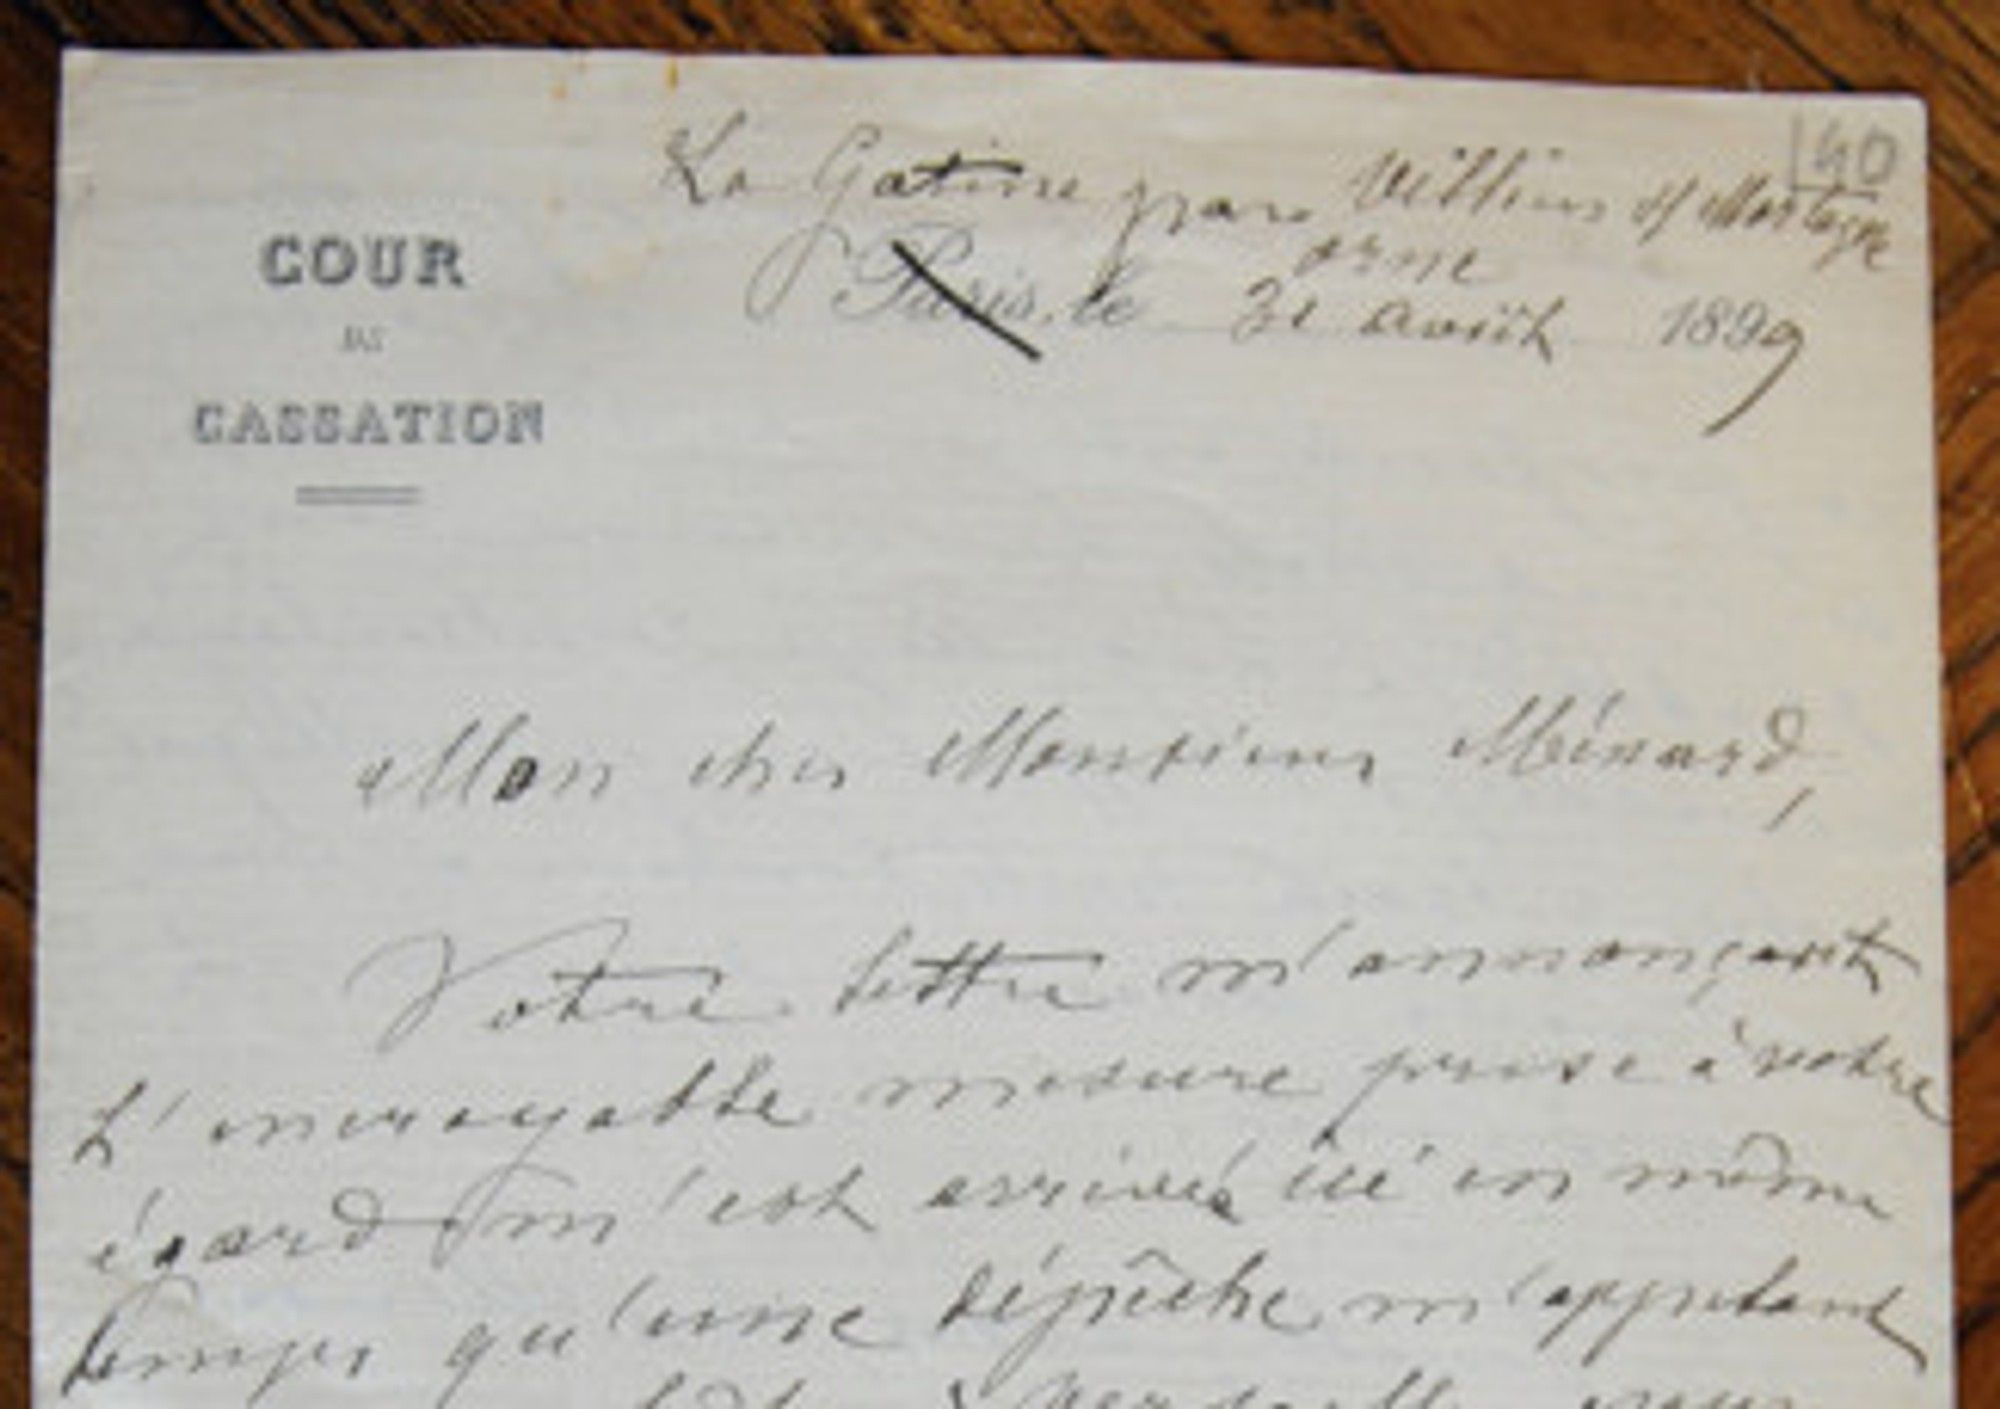 140
La Gatine par Villiers s/ Mortagne
orne
COUR
DE
CASSATION
Paris, le 31 août 1899
Mon cher Monsieur Ménard,
Votre lettre m'annonçant
l'incroyable mesure prise à votre
égard m'est arrivée ici en même
temps qu'une dépêche m'appelant
à Versailles pour